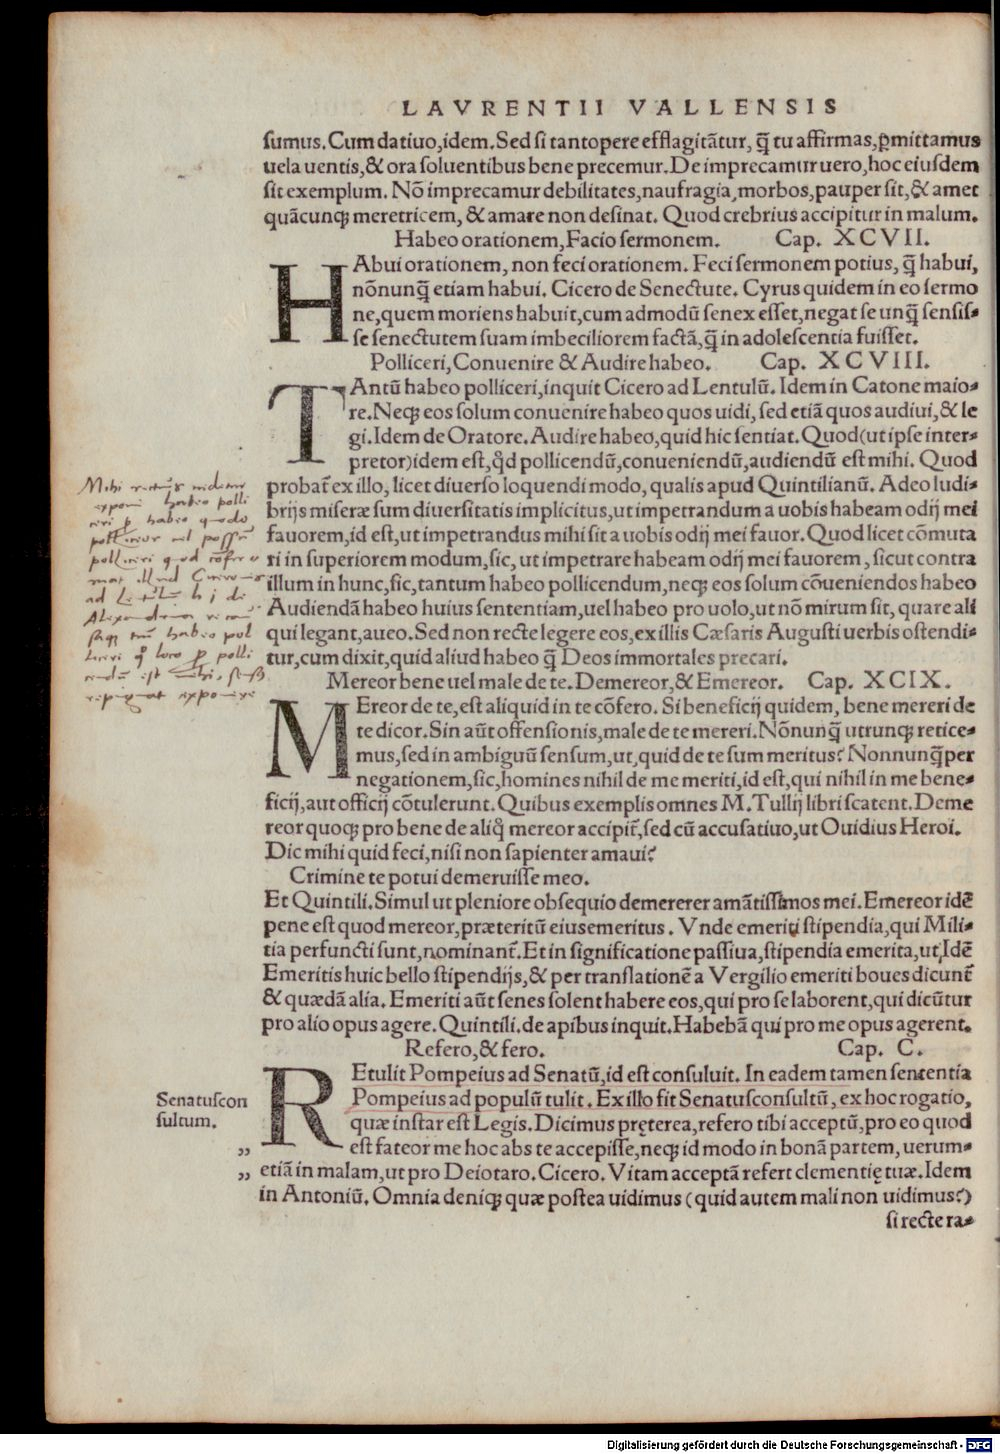 LAVRENTII VALLENSIS
sumus. Cum datiuo, idem. Sed si tantopere efflagitãtur, q̃ tu affirmas, ꝑmittamus
uela uentis, & ora soluentibus bene precemur. De imprecamur uero, hoc eiusdem
sit exemplum. Nõ imprecamur debilitates, naufragia, morbos, pauper sit, & amet
quãcunqꝫ meretricem, & amare non desinat. Quod crebrius accipitur in malum.
Habeo orationem, Facio sermonem. Cap. XCVII.
HAbui orationem, non feci orationem. Feci sermonem potius, q̃ habui,
nõnunq̃ etiam habui. Cicero de Senectute. Cyrus quidem in eo sermo
ne, quem moriens habuit, cum admodũ senex esset, negat se unq̃ sensis-
se senectutem suam imbeciliorem factã, q̃ in adolescentia fuisset.
Polliceri, Conuenire & Audire habeo. Cap. XCVIII.
TAntũ habeo polliceri, inquit Cicero ad Lentulũ. Idem in Catone maio-
re. Neqꝫ eos solum conuenire habeo quos uidi, sed etiã quos audiui, & le
gi. Idem de Oratore. Audire habeo, quid hic sentiat. Quod (ut ipse inter-
pretor) idem est, qd̕ pollicendũ, conueniendũ, audiendũ est mihi. Quod
probat᷑ ex illo, licet diuerso loquendi modo, qualis apud Quintilianũ. Adeo ludi-
brijs miseræ sum diuersitatis implicitus, ut impetrandum a uobis habeam odij mei
fauorem, id est, ut impetrandus mihi sit a uobis odij mei fauor. Quod licet cõmuta
ri in superiorem modum, sic, ut impetrare habeam odij mei fauorem, sicut contra
illum in hunc, sic, tantum habeo pollicendum, neqꝫ eos solum cõueniendos habeo
Audiendã habeo huius sententiam, uel habeo pro uolo, ut nõ mirum sit, quare ali
qui legant, aueo. Sed non recte legere eos, ex illis Cæsaris Augusti uerbis ostendi-
tur, cum dixit, quid aliud habeo q̃ Deos immortales precari.
Mihi rectius videtur
exponi habeo polli
ceri ꝑ habeo quodo
polliceor vel possum
polliceri quod
illud Ciceronis
ad Lentulum li j de
Alexandrina
habeo pol
liceri loco ꝑ polli
cendũ est mihi, sensꝰ
repugnat exponere
Mereor bene uel male de te. Demereor, & Emereor. Cap. XCIX.
MEreor de te, est aliquid in te cõfero. Si beneficij quidem, bene mereri de
te dicor. Sin aũt offensionis, male de te mereri. Nõnunq̃ utrunqꝫ retice-
mus, sed in ambiguũ sensum, ut, quid de te sum meritus? Nonnunq̃ per
negationem, sic, homines nihil de me meriti, id est, qui nihil in me bene-
ficij, aut officij cõtulerunt. Quibus exemplis omnes M. Tullij libri scatent. Deme
reor quoqꝫ pro bene de aliq̊ mereor accipit᷑, sed cũ accusatiuo, ut Ouidius Heroi.
Dic mihi quid feci, nisi non sapienter amaui?
Crimine te potui demeruisse meo.
Et Quintili. Simul ut pleniore obsequio demererer amãtissimos mei. Emereor idẽ
pene est quod mereor, præteritũ eius emeritus. Vnde emeriti stipendia, qui Mili-
tia perfuncti sunt, nominant᷑. Et in significatione passiua, stipendia emerita, ut, Idẽ
Emeritis huic bello stipendijs, & per translationẽ a Vergilio emeriti boues dicunt᷑
& quædã alia. Emeriti aũt senes solent habere eos, qui pro se laborent, qui dicũtur
pro alio opus agere. Quintili. de apibus inquit. Habebã qui pro me opus agerent.
Refero, & fero. Cap. C.
REtulit Pompeius ad Senatũ, id est consuluit. In eadem tamen sententia
Pompeius ad populũ tulit. Ex illo fit Senatusconsultũ, ex hoc rogatio,
quæ instar est Legis. Dicimus pręterea, refero tibi acceptũ, pro eo quod
est fateor me hoc abs te accepisse, neqꝫ id modo in bonã partem, uerum-
etiã in malam, ut pro Deiotaro. Cicero. Vitam acceptã refert clementię tuæ. Idem
in Antoniũ. Omnia deniqꝫ quæ postea uidimus (quid autem mali non uidimus?)
si recte ra-
Senatuscon
sultum.
„
„
Digitalisierung gefördert durch die Deutsche Forschungsgemeinschaft - DFG